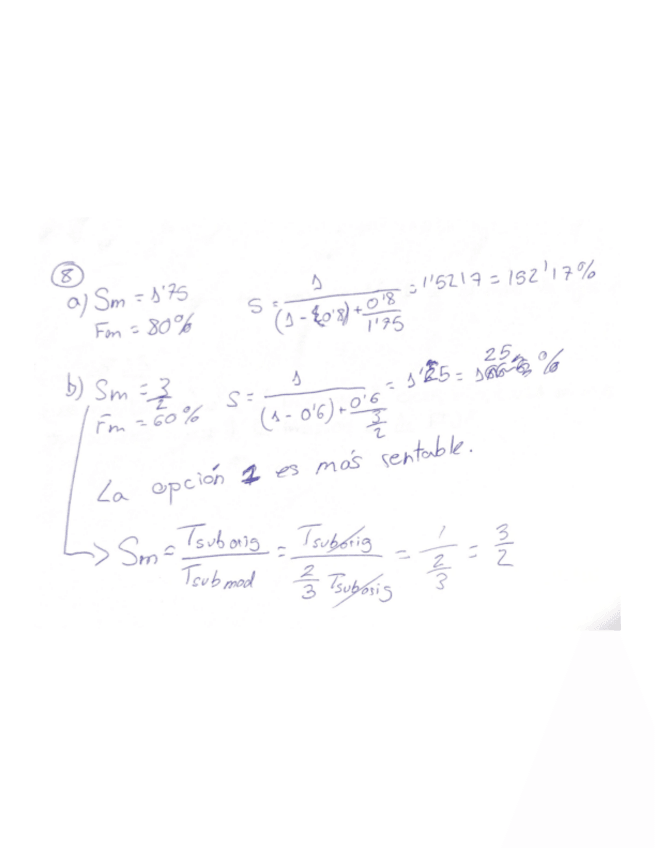 ⑧
a) Sm = 1'75
Fm = 80%
S = 1 / ((1 - 0'8) + 0'8 / 1'75) = 1'5217 = 152'17%
b) Sm = 3/2
Fm = 60%
S = 1 / ((1 - 0'6) + 0'6 / (3/2)) = 1'25 = 25%
La opción 1 es más rentable.
→ Sm = Tsub orig / Tsub mod = Tsuborig / (2/3 Tsuborig) = 1 / (2/3) = 3/2